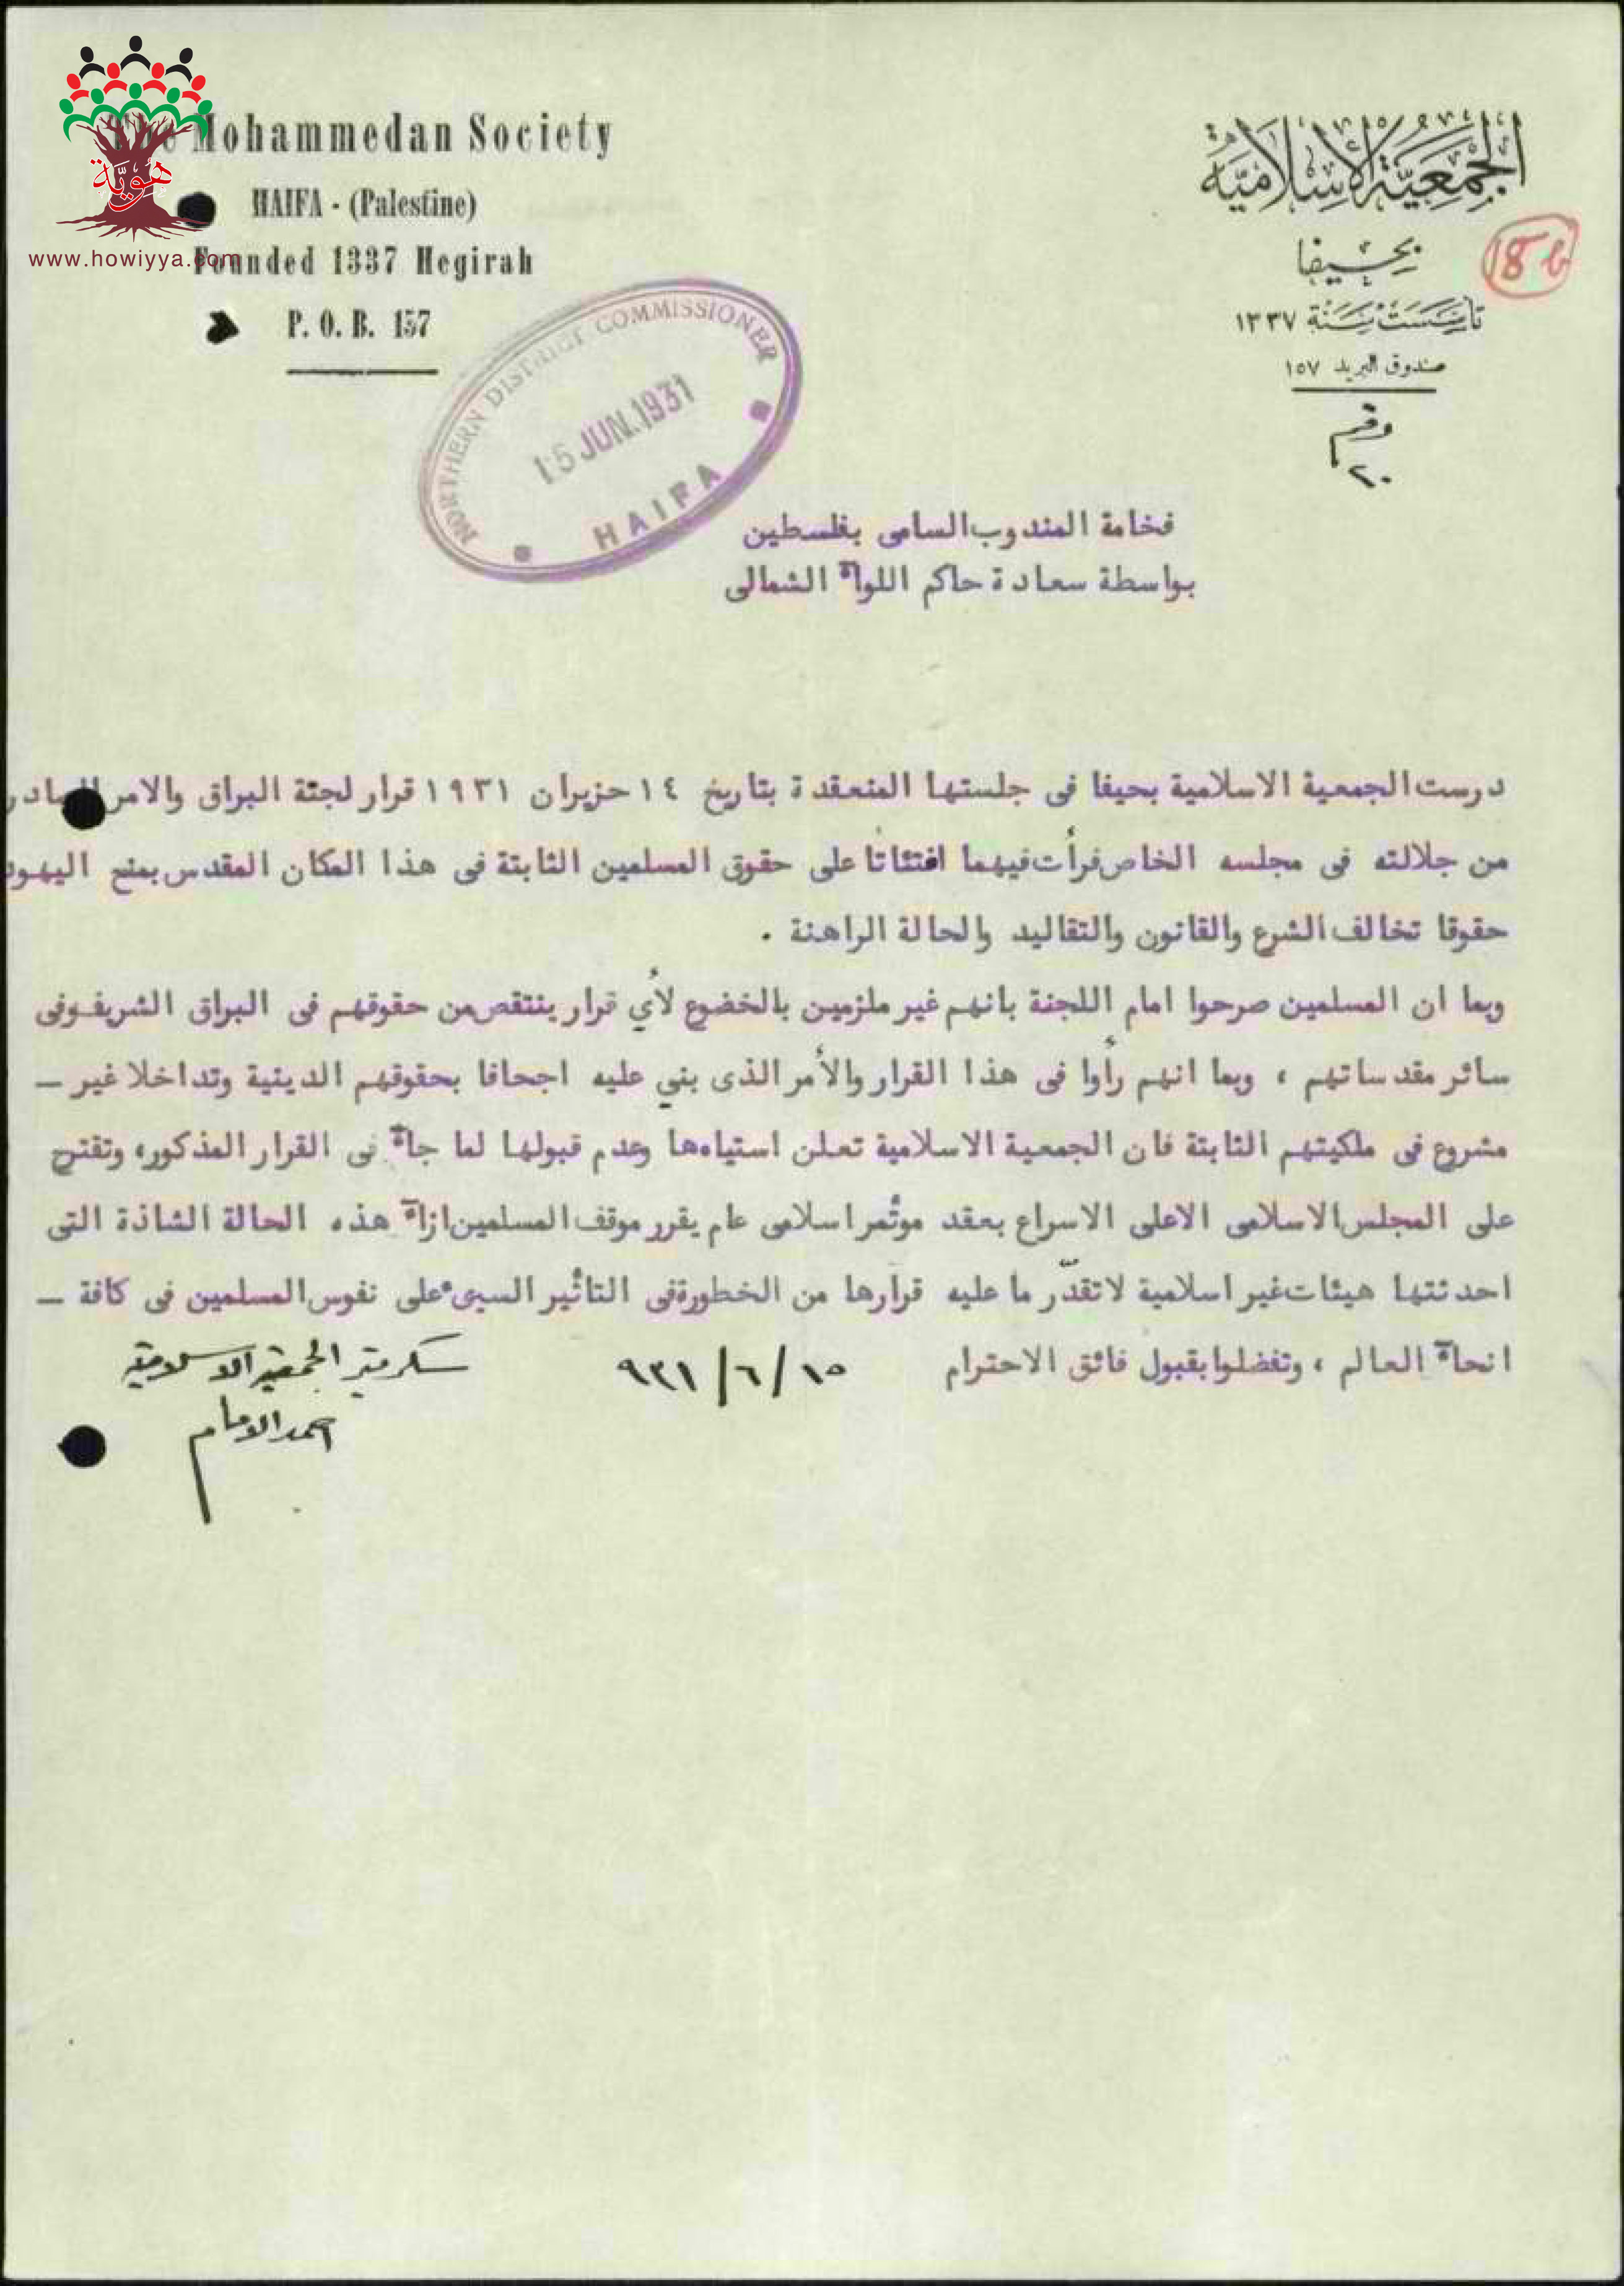 The Mohammedan Society
HAIFA - (Palestine)
Founded 1337 Hegirah
P. O. B. 157
هوية
www.howiyya.com
الجمعية الإسلامية
بحيفا
تأسست سنة ١٣٣٧
صندوق البريد ١٥٧
رقم
٢٠
18b
NORTHERN DISTRICT COMMISSIONER
15 JUN.1931
HAIFA
فخامة المندوب السامى بفلسطين
بواسطة سعادة حاكم اللوآء الشمالى
درست الجمعية الاسلامية بحيفا فى جلستها المنعقدة بتاريخ ١٤ حزيران ١٩٣١ قرار لجنة البراق والامر الصادر
من جلالته فى مجلسه الخاص فرأت فيهما افتئاتا على حقوق المسلمين الثابتة فى هذا المكان المقدس بمنح اليهود
حقوقا تخالف الشرع والقانون والتقاليد والحالة الراهنة .
وبما ان المسلمين صرحوا امام اللجنة بانهم غير ملزمين بالخضوع لأي قرار ينتقص من حقوقهم فى البراق الشريف وفى
سائر مقدساتهم ، وبما انهم رأوا فى هذا القرار والأمر الذى بني عليه اجحافا بحقوقهم الدينية وتداخلا غير –
مشروع فى ملكيتهم الثابتة فان الجمعية الاسلامية تعلن استياءها وعدم قبولها لما جآء فى القرار المذكور، وتقترح
على المجلس الاسلامى الاعلى الاسراع بعقد مؤتمر اسلامى عام يقرر موقف المسلمين ازآء هذه الحالة الشاذة التى
احدثتها هيئات غير اسلامية لا تقدّر ما عليه قرارها من الخطورة فى التأثير السىء على نفوس المسلمين فى كافة –
انحآء العالم ، وتفضلوا بقبول فائق الاحترام ١٥/٦/٩٣١
سكرتير الجمعية الاسلامية
احمد الامام